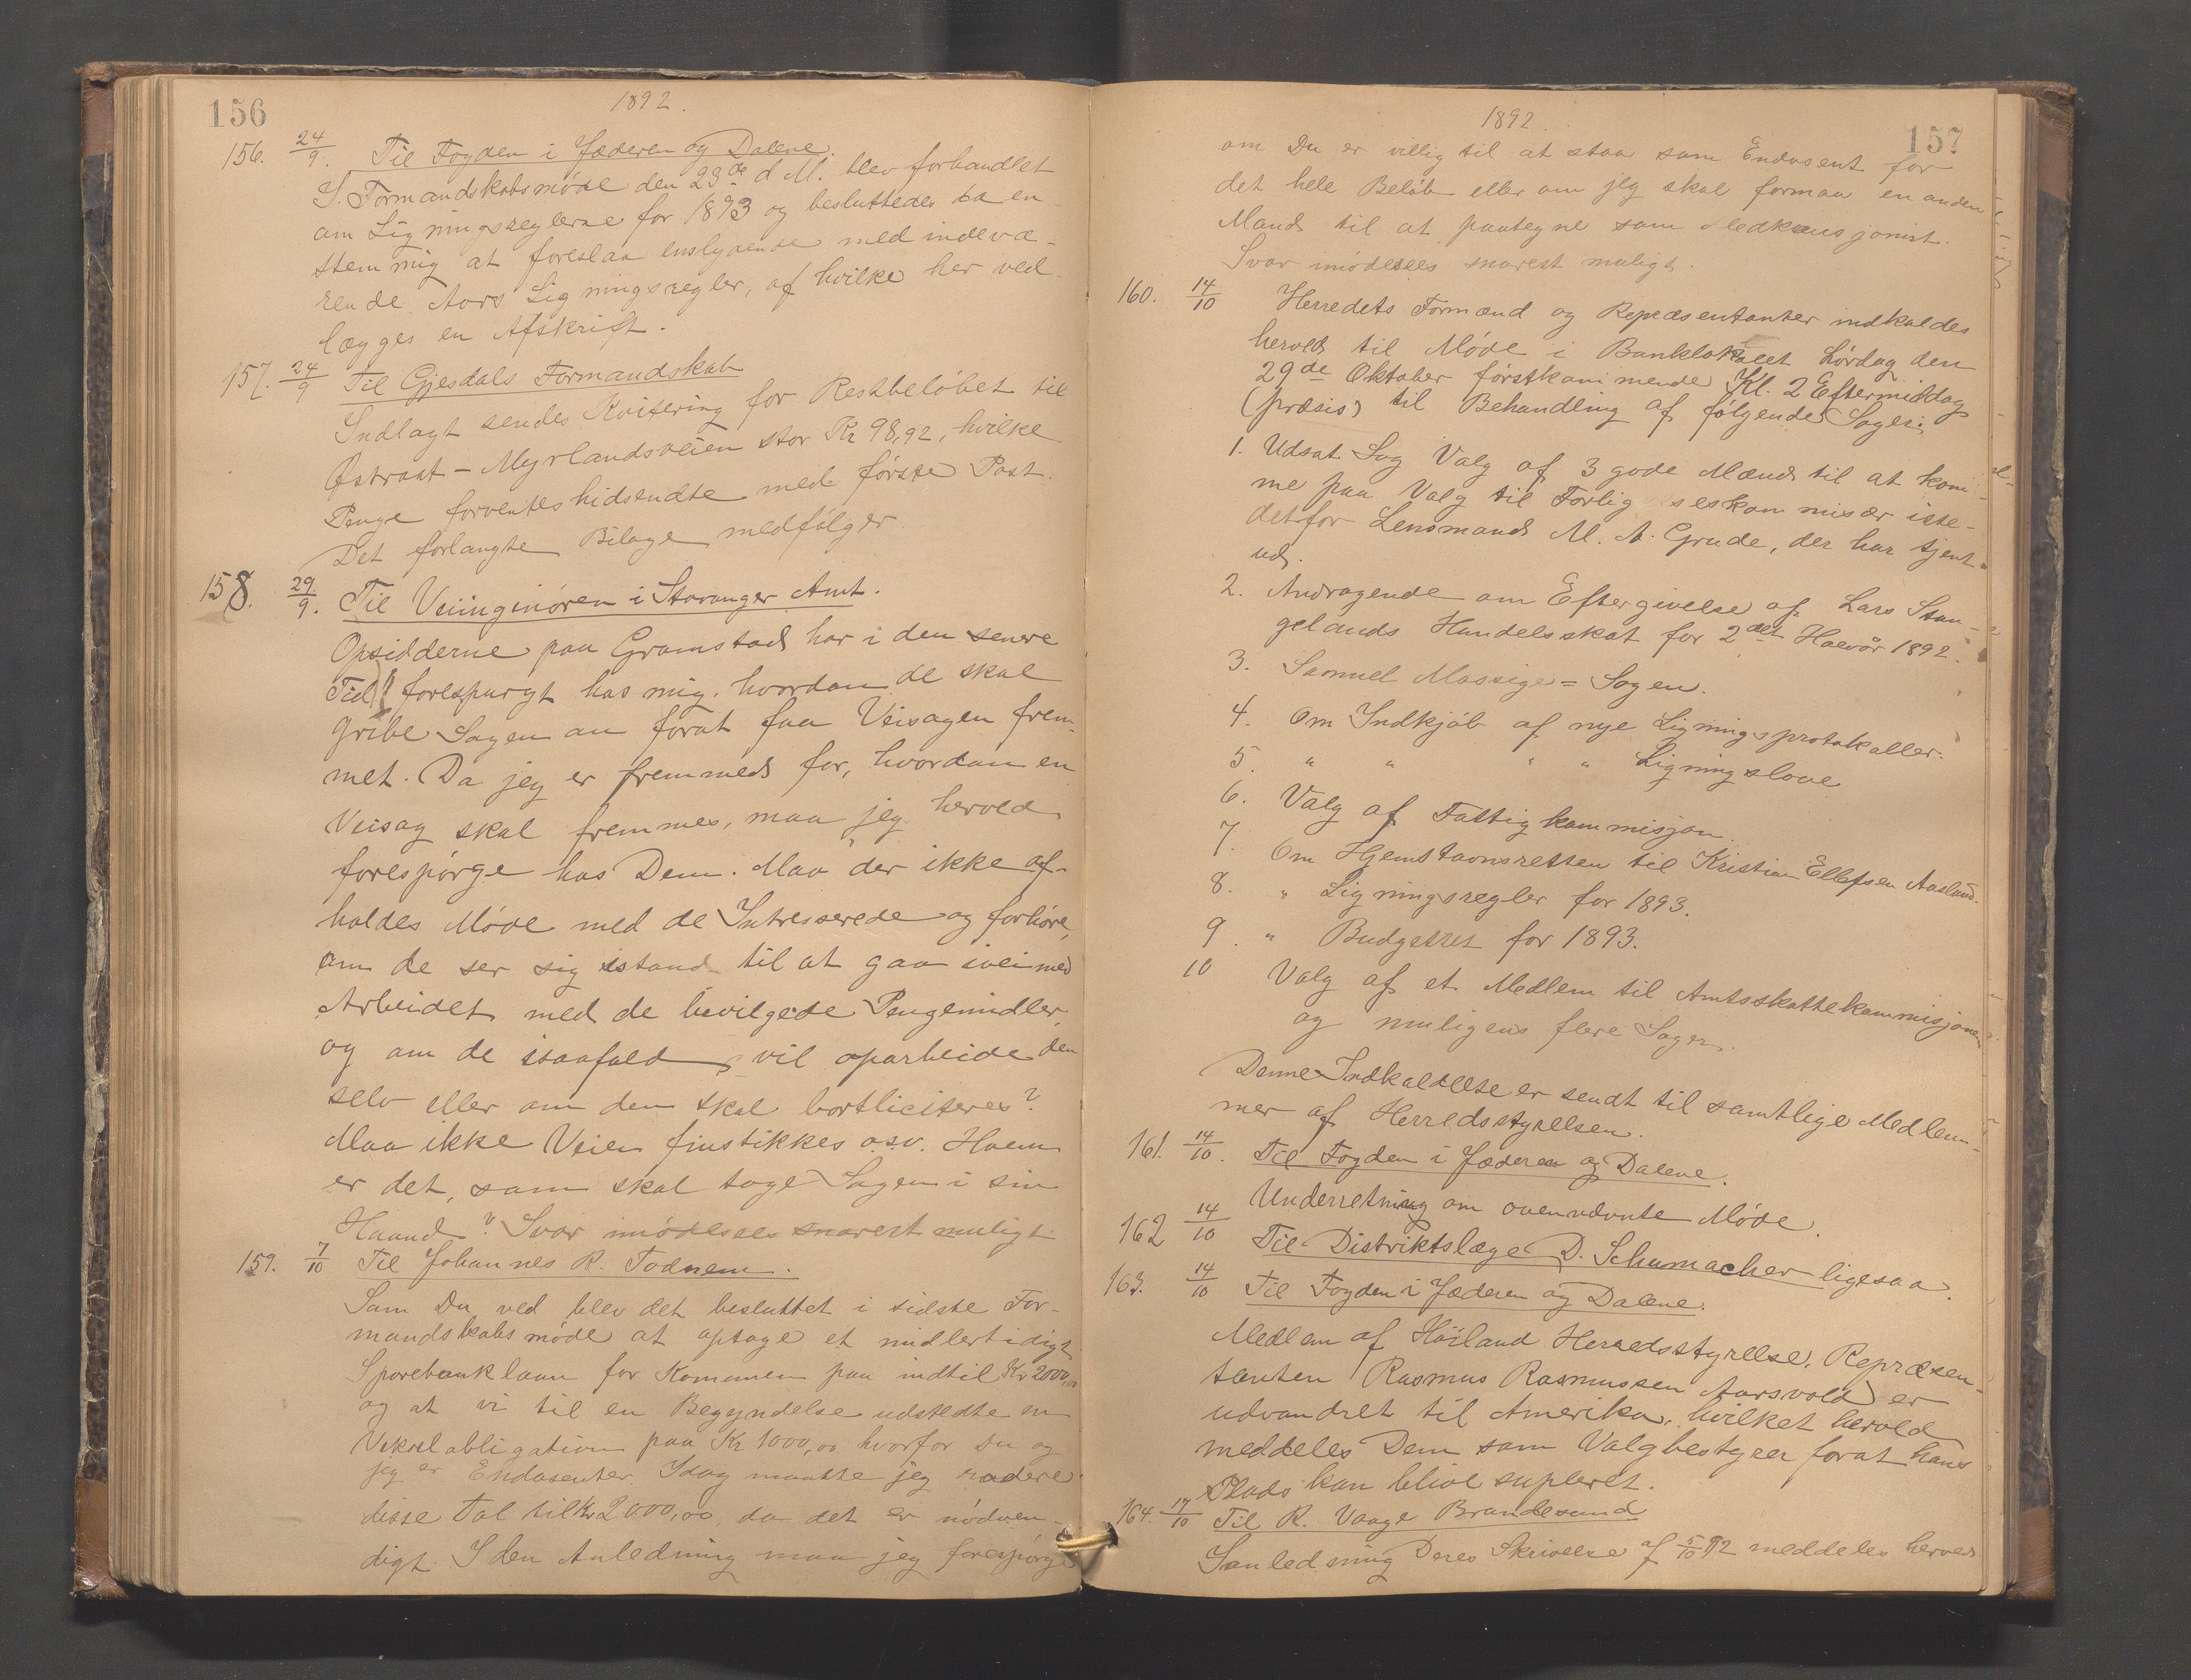 156
1892.
156. 24/9. Til Fogden i Jæderen og Dalene.
I Formandskabsmøde den 23de d M. blev forhandlet
om Ligningsreglerne for 1893 og besluttedes da en-
stemmig at foreslaa enslydende med indevæ-
rende Aars Ligningsregler, af hvilke her ved-
lægges en Afskrift.
157. 24/9 Til Gjesdals Formandskab
Indlagt sendes Kvitering for Restbeløbet til
Østraat-Myrlandsveien stor Kr 98,92, hvilke
Penge forventes hidsendte med første Post.
Det forlangte Bilage medfølger.
158. 29/9. Til Veiingeniøren i Stavanger Amt.
Opsidderne paa Gramstad har i den senere
Tid forespurgt hos mig, hvordan de skal
gribe Sagen an forat faa Veisagen frem-
met. Da jeg er fremmed for, hvordan en
Veisag skal fremmes, maa jeg herved
forespørge hos Dem. Maa der ikke af-
holdes Møde med de Intresserede og forhøre,
om de ser sig istand til at gaa ivei med
Arbeidet med de bevilgede Pengemidler,
og om de isaafald vil oparbeide den
selv eller om den skal bortliciteres?
Maa ikke Veien finstikkes o.s.v. Hvem
er det, som skal tage Sagen i sin
Haand? Svar imødesees snarest muligt.
159. 7/10 Til Johannes R. Todnem.
Som Du ved blev det besluttet i sidste For-
mandskabsmøde at optage et midlertidigt
Sparebanklaan for Kommunen paa indtil Kr 2000,00
og at vi til en Begyndelse udstedte en
Vekselobligation paa Kr 1000,00 hvorfor Du og
jeg er Endosenter. Idag maatte jeg radere
disse Tal til Kr 2000,00, da det er nødven-
digt. I den Anledning maa jeg forespørge
1892.
157
om Du er villig til at staa som Endosent for
det hele Beløb eller om jeg skal formaa en anden
Mand til at paategne som Medkausjonist.
Svar imødesees snarest muligt.
160. 14/10 Herredets Formænd og Repræsentanter indkaldes
herved til Møde i Banklokalet Lørdag den
29de Oktober førstkommende Kl. 2 Eftermiddag
(præsis) til Behandling af følgende Sager:
1. Udsat Sag Valg af 3 gode Mænd til at kom-
me paa Valg til Forligelseskommisær iste-
detfor Lensmand M. A. Grude, der har tjent
ud.
2. Andragende om Eftergivelse af Lars Stan-
gelands Handelsskat for 2det Halvår 1892.
3. Samuel Massige=Sagen.
4. Om Indkjøb af nye Ligningsprotokoller.
5. " " " " Ligningslove
6. Valg af Fattigkommisjon.
7. Om Hjemstavnsretten til Kristian Ellefsen Aasland.
8. " Ligningsregler for 1893.
9. " Budgettet for 1893.
10 Valg af et Medlem til Amtsskattekommisjonen
og muligens flere Sager.
Denne Indkaldelse er sendt til samtlige Medlem-
mer af Herredsstyrelsen.
161. 14/10. Til Fogden i Jæderen og Dalene.
Underretning om ovennævnte Møde.
162 14/10 Til Distriktslæge D. Schumacher ligesaa.
163. 14/10 Til Fogden i Jæderen og Dalene.
Medlem af Høiland Herredsstyrelse, Repræsen-
tanten Rasmus Rasmussen Aarsvold er
udvandret til Amerika, hvilket herved
meddeles Dem som Valgbestyrer forat hans
Plads kan blive supleret.
164. 17/10 Til R. Vaage Brandesund
I anledning Deres Skrivelse af 5/10 92 meddeles herved